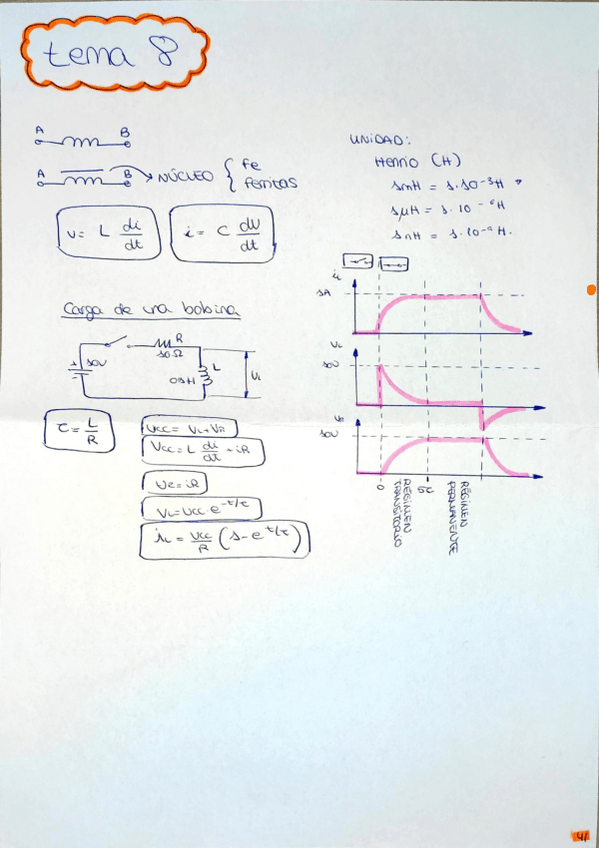 tema 8
A B
A B
NÚCLEO { Fe
Ferritas
v = L di/dt
i = C dV/dt
UNIDAD:
Henrio (H)
1mH = 1.10⁻³H
1μH = 1.10⁻⁶H
1nH = 1.10⁻⁹H.
Carga de una bobina
R
10Ω
+
10V
L
VL
τ = L/R
Vcc = VL + VR
Vcc = L di/dt + iR
VR = iR
VL = Vcc · e^-t/τ
iL = Vcc/R (1 - e^t/τ)
iL
1A
VL
10V
VR
10V
0
5τ
RÉGIMEN
TRANSITORIO
RÉGIMEN
PERMANENTE
41